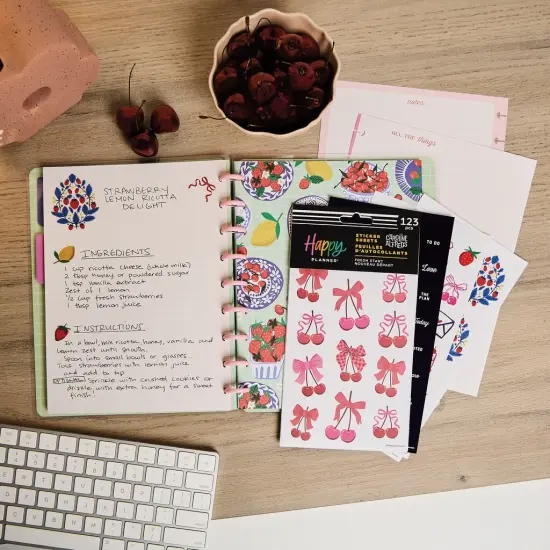 STRAWBERRY
LEMON RICOTTA
DELIGHT
INGREDIENTS
1 cup ricotta cheese (whole milk)
2 tbsp honey or powdered sugar
1 tsp vanilla extract
Zest of 1 lemon
1/2 cup fresh strawberries
1 tbsp lemon juice
INSTRUCTIONS
In a bowl, mix ricotta, honey, vanilla, and
lemon zest until smooth.
Spoon into small bowls or glasses.
Toss strawberries with lemon juice
and add to top
Sprinkle with crushed cookies or
drizzle with extra honey for a sweet
finish!
notes
ALL THE things
123
Happy
PLANNER
STICKER
SHEETS
FEUILLES
D'AUTOCOLLANTS
FRESH START
NOUVEAU DÉPART
TO DO
Love
THE PLAN
Today